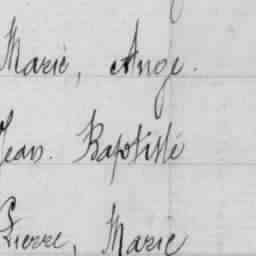 Marie, Ange.
Jean. Baptiste
Pierre, Marie